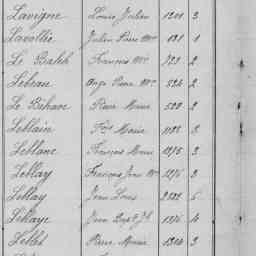 Lavigne Louis Julien 1201 3
Lavollée Julien Pierre Mie 131 1
Le Balch François Mie 723 2
Lebran Ange Pierre Mie 524 2
Le Bihan Pierre Marie 529 2
Leblain Fois Marie 3
Leblanc François Marie 1275 3
Leblay François Jean Mie 1276 3
Leblay Jean Louis 6
Lebaye Jean Bapte Jh 4
Leblet Pierre Marie 1304 3